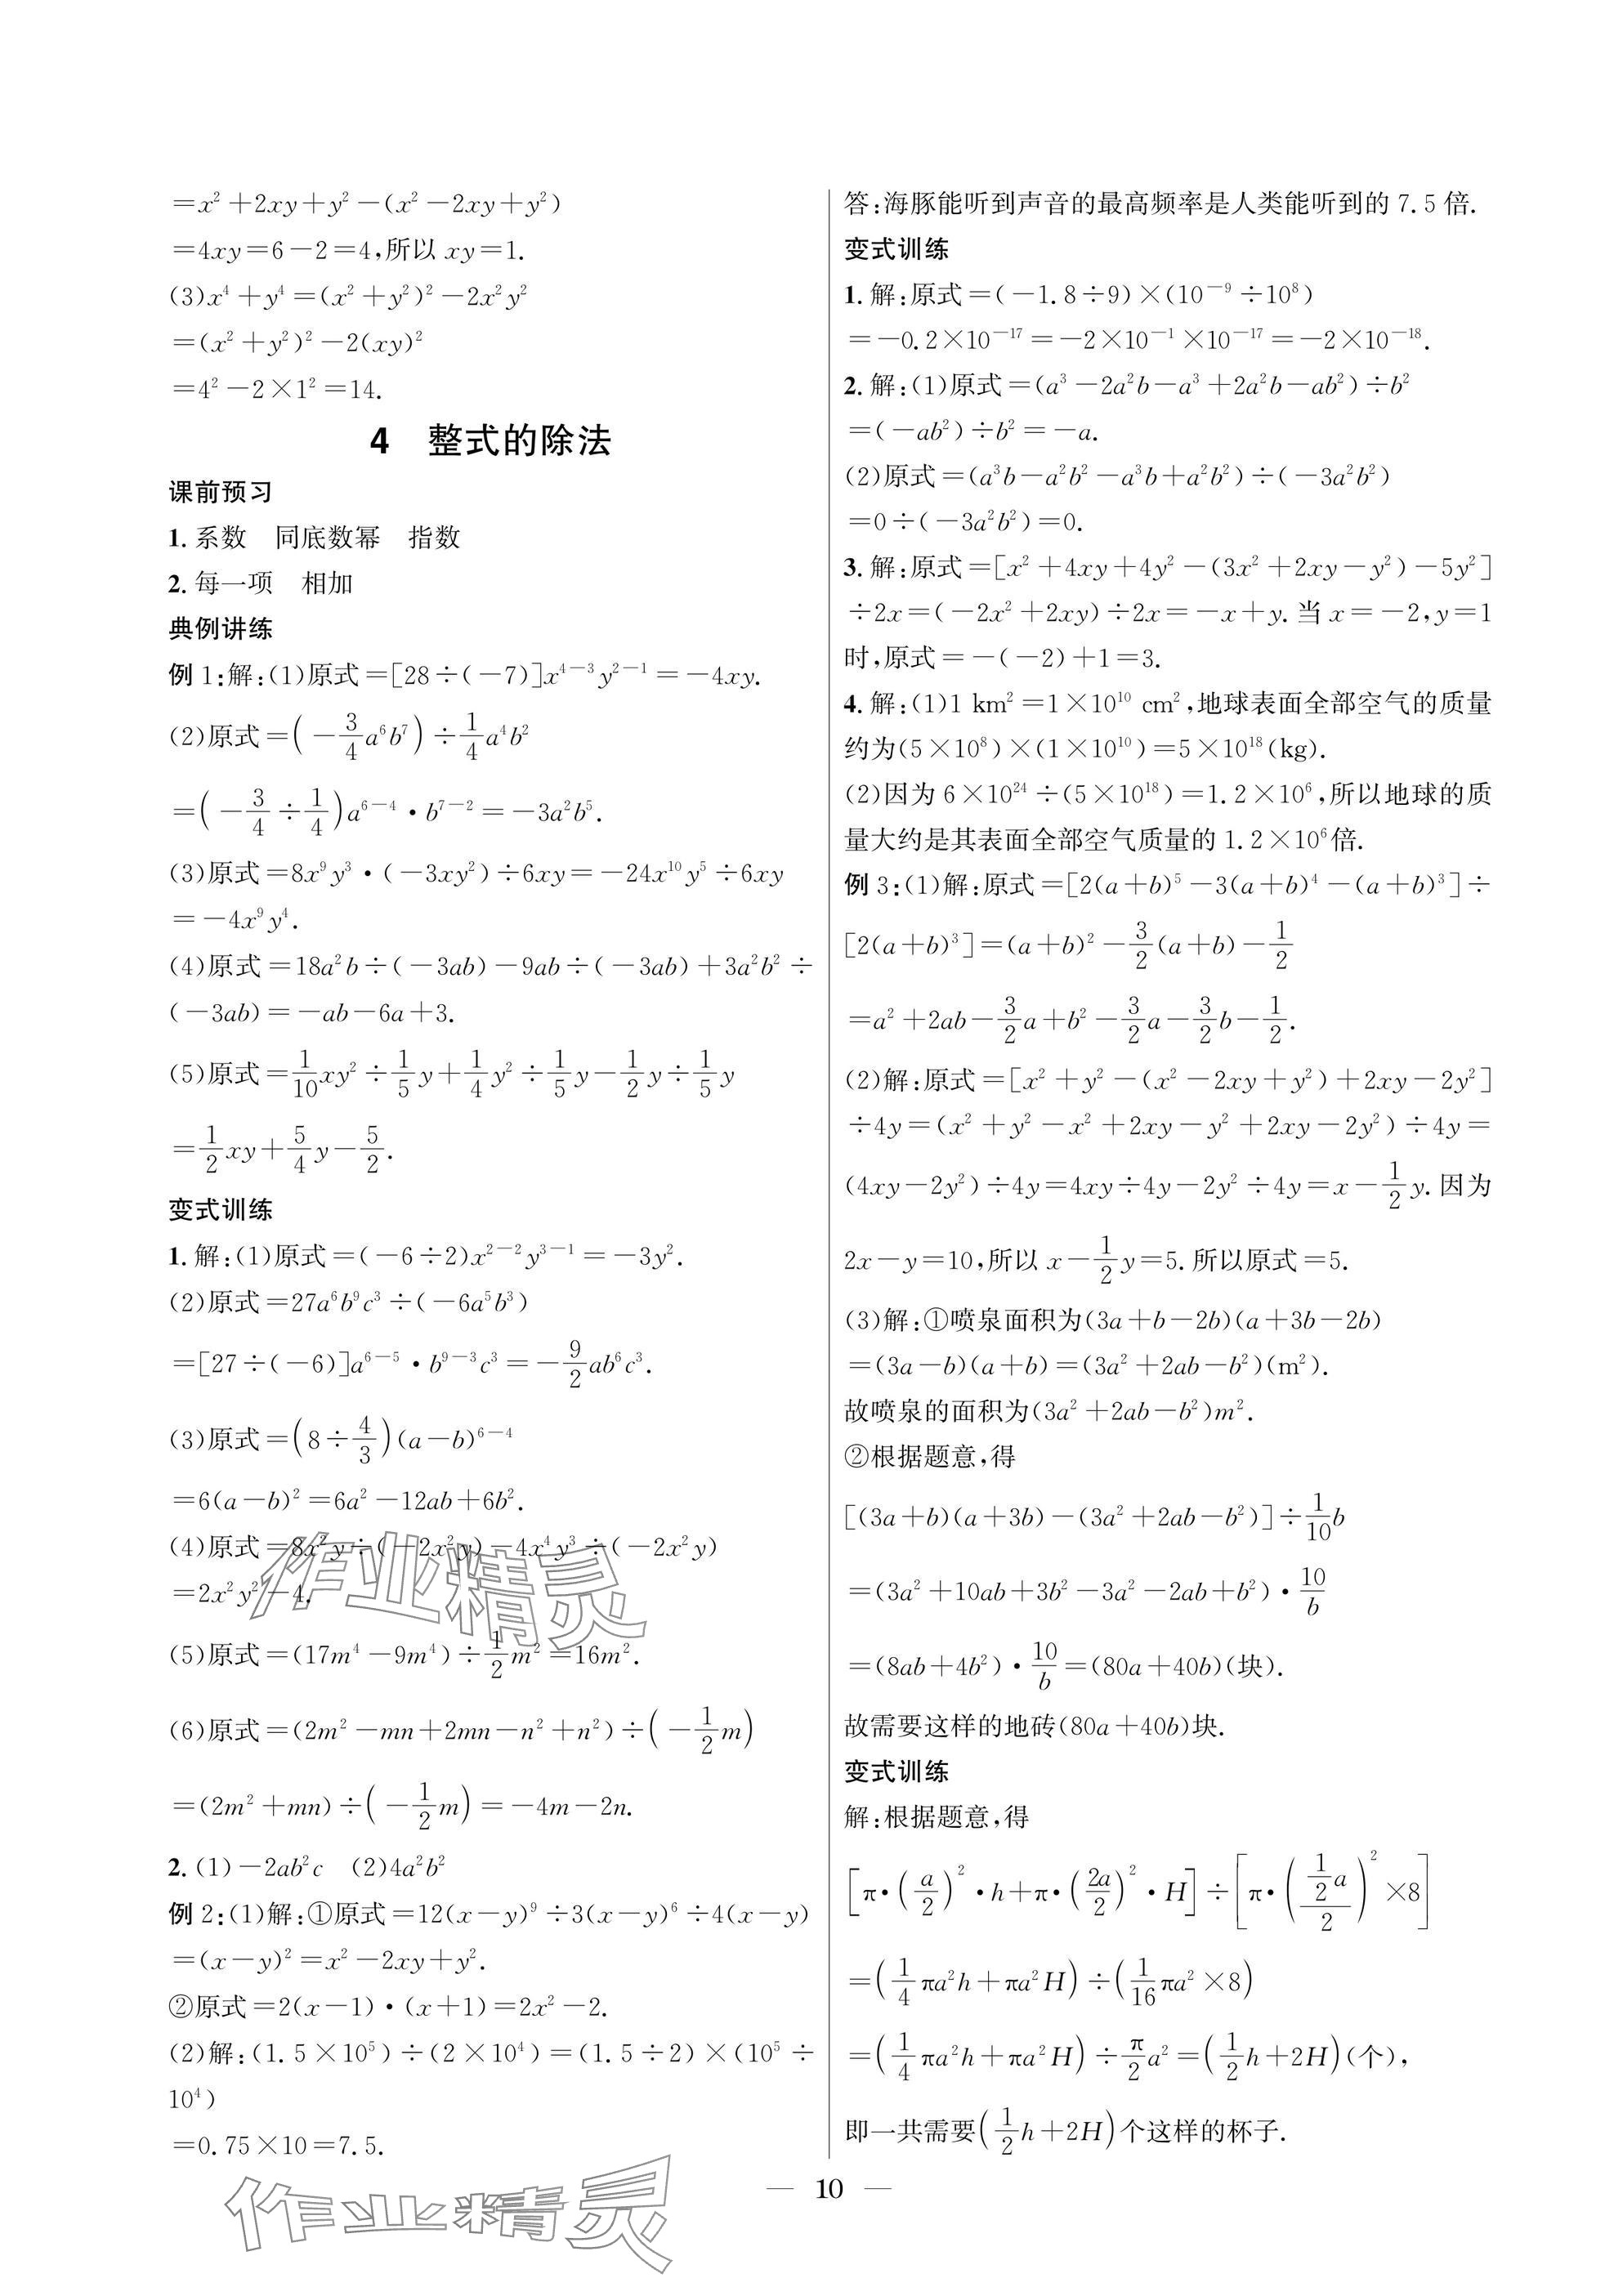 =x²+2xy+y²-(x²-2xy+y²)
=4xy=6-2=4,所以 xy=1.
(3)x⁴+y⁴=(x²+y²)²-2x²y²
=(x²+y²)²-2(xy)²
=4²-2×1²=14.
4 整式的除法
课前预习
1. 系数 同底数幂 指数
2. 每一项 相加
典例讲练
例 1:解:(1)原式=[28÷(-7)]x⁴⁻³y²⁻¹=-4xy.
(2)原式=(-3/4 a⁶b⁷)÷1/4 a⁴b²
=(-3/4÷1/4)a⁶⁻⁴·b⁷⁻²=-3a²b⁵.
(3)原式=8x⁹y³·(-3xy²)÷6xy=-24x¹⁰y⁵÷6xy
=-4x⁹y⁴.
(4)原式=18a²b÷(-3ab)-9ab÷(-3ab)+3a²b²÷
(-3ab)=-ab-6a+3.
(5)原式=1/10 xy²÷1/5 y+1/4 y²÷1/5 y-1/2 y÷1/5 y
=1/2 xy+5/4 y-5/2.
变式训练
1. 解:(1)原式=(-6÷2)x²⁻²y³⁻¹=-3y².
(2)原式=27a⁶b⁹c³÷(-6a⁵b³)
=[27÷(-6)]a⁶⁻⁵·b⁹⁻³c³=-9/2 ab⁶c³.
(3)原式=(8÷4/3)(a-b)⁶⁻⁴
=6(a-b)²=6a²-12ab+6b².
(4)原式=8x²y÷(-2x²y)-4x⁴y³÷(-2x²y)
=2x²y²-4.
(5)原式=(17m⁴-9m⁴)÷1/2 m²=16m².
(6)原式=(2m²-mn+2mn-n²+n²)÷(-1/2 m)
=(2m²+mn)÷(-1/2 m)=-4m-2n.
2. (1)-2ab²c (2)4a²b²
例 2:(1)解:①原式=12(x-y)⁹÷3(x-y)⁶÷4(x-y)
=(x-y)²=x²-2xy+y².
②原式=2(x-1)·(x+1)=2x²-2.
(2)解:(1.5×10⁵)÷(2×10⁴)=(1.5÷2)×(10⁵÷
10⁴)
=0.75×10=7.5.
答:海豚能听到声音的最高频率是人类能听到的 7.5 倍.
变式训练
1. 解:原式=(-1.8÷9)×(10⁻⁹÷10⁸)
=-0.2×10⁻¹⁷=-2×10⁻¹×10⁻¹⁷=-2×10⁻¹⁸.
2. 解:(1)原式=(a³-2a²b-a³+2a²b-ab²)÷b²
=(-ab²)÷b²=-a.
(2)原式=(a³b-a²b²-a³b+a²b²)÷(-3a²b²)
=0÷(-3a²b²)=0.
3. 解:原式=[x²+4xy+4y²-(3x²+2xy-y²)-5y²]
÷2x=(-2x²+2xy)÷2x=-x+y. 当 x=-2,y=1
时,原式=-(-2)+1=3.
4. 解:(1)1 km²=1×10¹⁰ cm²,地球表面全部空气的质量
约为(5×10⁸)×(1×10¹⁰)=5×10¹⁸(kg).
(2)因为 6×10²⁴÷(5×10¹⁸)=1.2×10⁶,所以地球的质
量大约是其表面全部空气质量的 1.2×10⁶倍.
例 3:(1)解:原式=[2(a+b)⁵-3(a+b)⁴-(a+b)³]÷
[2(a+b)³]=(a+b)²-3/2(a+b)-1/2
=a²+2ab-3/2 a+b²-3/2 a-3/2 b-1/2.
(2)解:原式=[x²+y²-(x²-2xy+y²)+2xy-2y²]
÷4y=(x²+y²-x²+2xy-y²+2xy-2y²)÷4y=
(4xy-2y²)÷4y=4xy÷4y-2y²÷4y=x-1/2 y. 因为
2x-y=10,所以 x-1/2 y=5. 所以原式=5.
(3)解:①喷泉面积为(3a+b-2b)(a+3b-2b)
=(3a-b)(a+b)=(3a²+2ab-b²)(m²).
故喷泉的面积为(3a²+2ab-b²)m².
②根据题意,得
[(3a+b)(a+3b)-(3a²+2ab-b²)]÷1/10 b
=(3a²+10ab+3b²-3a²-2ab+b²)·10/b
=(8ab+4b²)·10/b=(80a+40b)(块).
故需要这样的地砖(80a+40b)块.
变式训练
解:根据题意,得
[π·(a/2)²·h+π·(2a/2)²·H]÷[π·(1/2 a/2)²×8]
=(1/4 πa²h+πa²H)÷(1/16 πa²×8)
=(1/4 πa²h+πa²H)÷π/2 a²=(1/2 h+2H)(个),
即一共需要(1/2 h+2H)个这样的杯子.
— 10 —
作业精灵
作业精灵